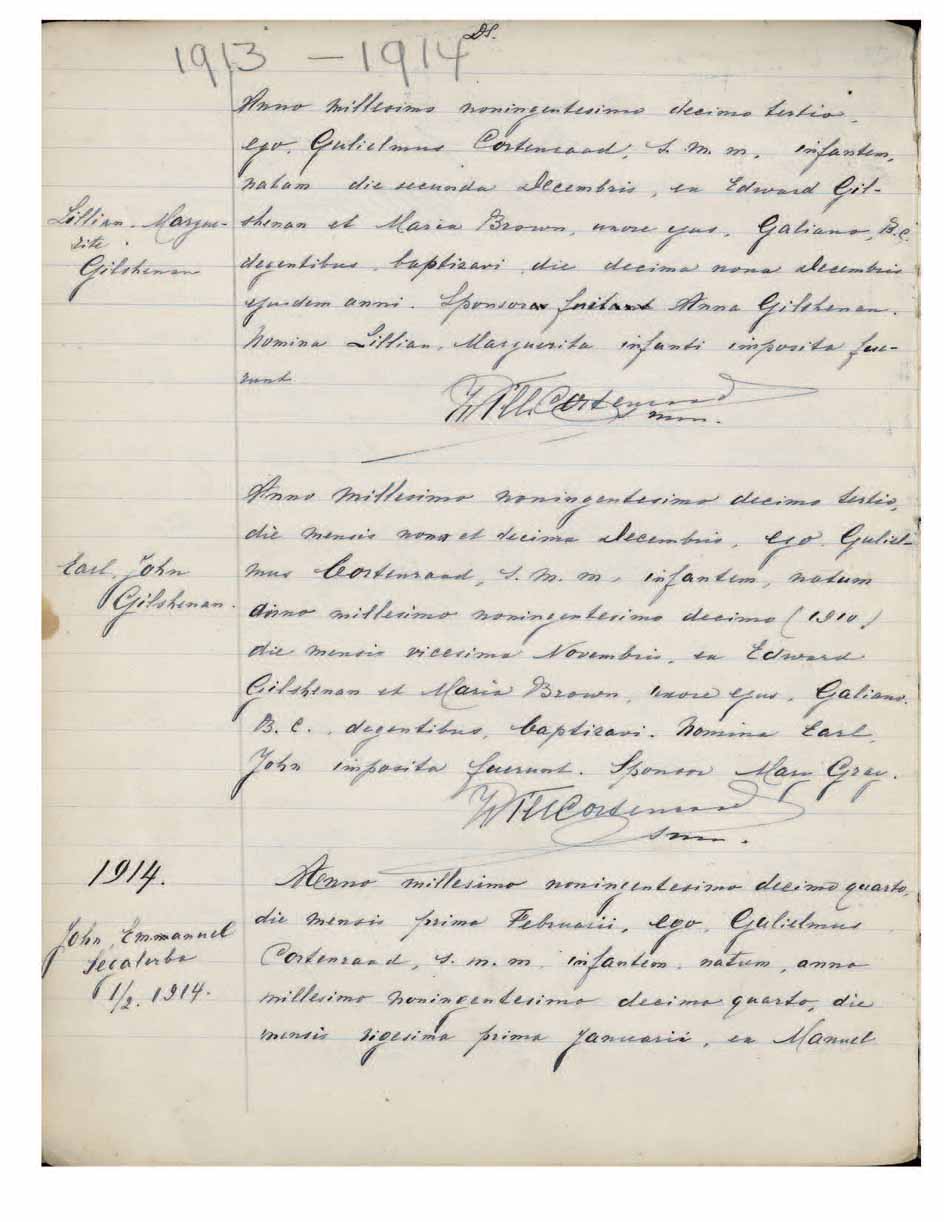 1913 - 1914
Ds.
Anno millesimo noningentesimo decimo tertio,
ego, Gulielmus Cortenraad, s. m. m. infantem,
natam die secunda Decembris, ex Edward Gil-
Lillian Margue-
rite
Gilshenan
shenan et Maria Brown, uxore ejus, Galiano, B.C.
degentibus, baptizavi die decima nona Decembris
ejusdem anni. Sponsor fuit Anna Gilshenan.
Nomina Lillian, Marguerita infanti imposita fue-
runt
Will. Cortenraad
s mm.
Anno millesimo noningentesimo decimo tertio,
die mensis nona et decima Decembris, ego Guliel-
Earl, John
Gilshenan.
mus Cortenraad, s. m. m. infantem, natum
anno millesimo noningentesimo decimo (1910)
die mensis vicesima Novembris, ex Edward
Gilshenan et Maria Brown, uxore ejus, Galiano.
B. C. degentibus, baptizavi. Nomina Earl,
John imposita fuerunt. Sponsor Mary Gray.
Will Cortenraad
smm.
1914.
Anno millesimo noningentesimo decimo quarto,
die mensis prima Februarii, ego, Gulielmus
John, Emmanuel
Segalerba
1/2. 1914.
Cortenraad, s. m. m. infantem, natum, anno
millesimo noningentesimo decimo quarto, die
mensis vigesima prima Januarii, ex Manuel